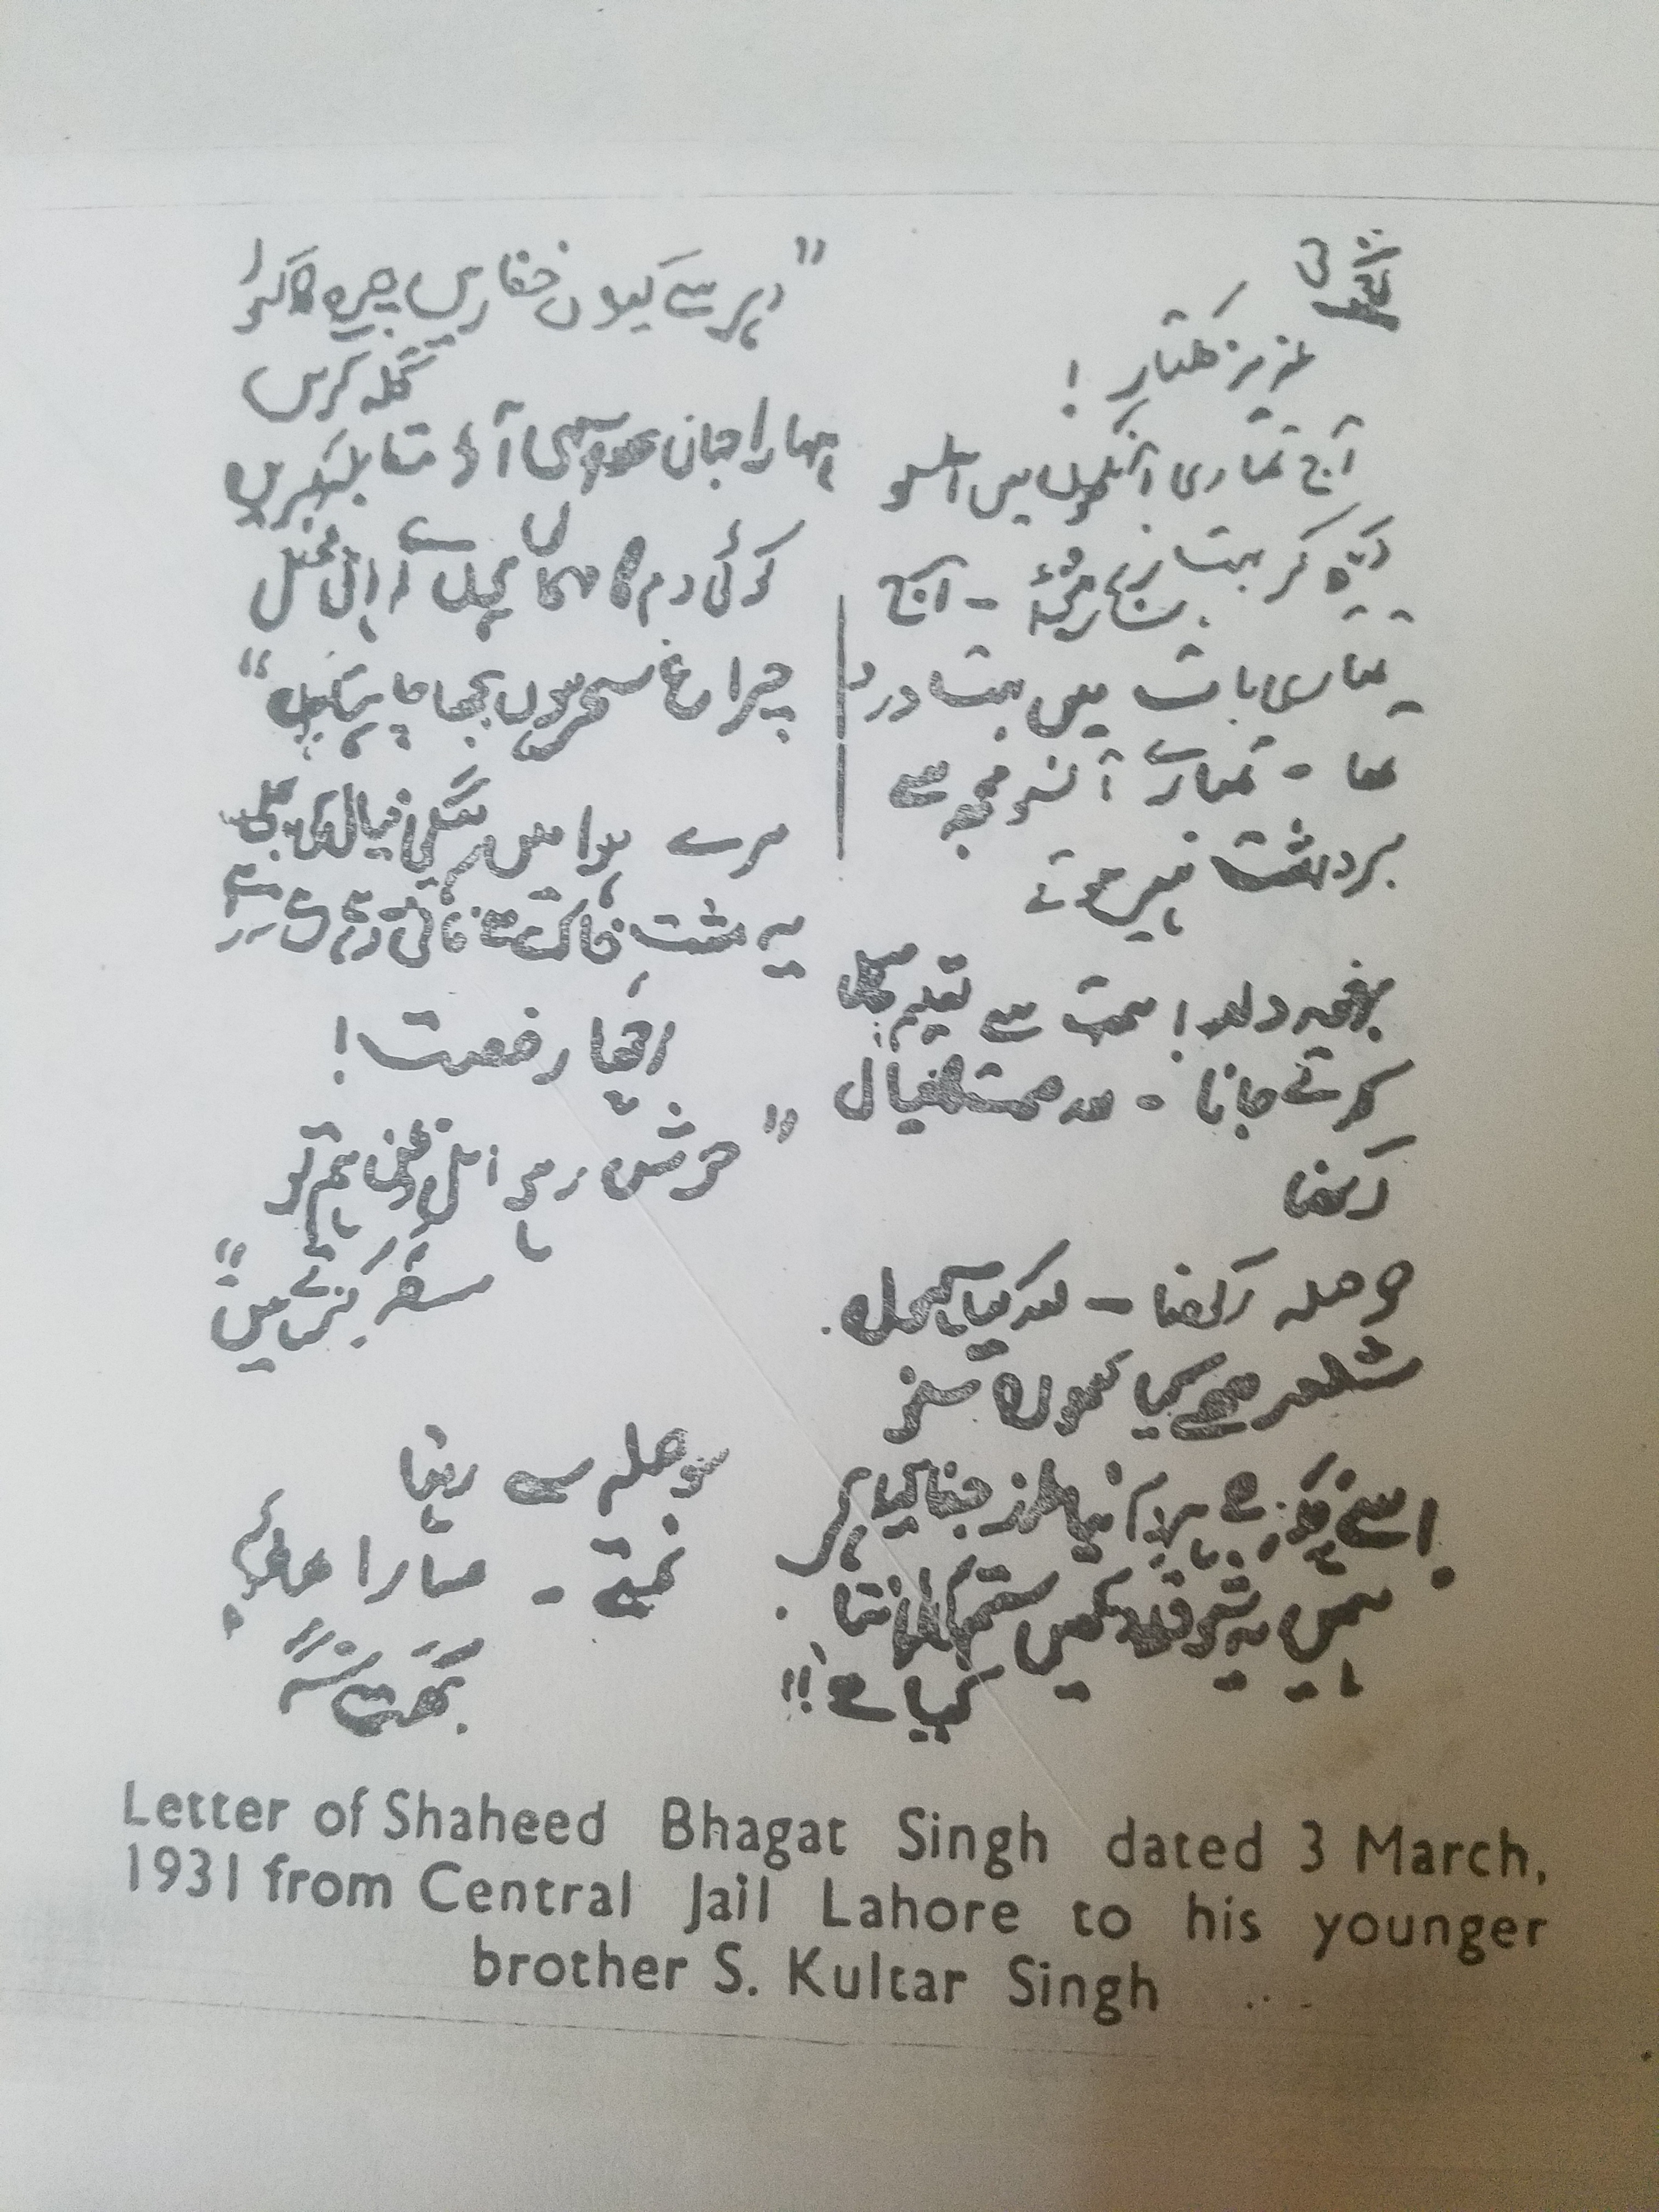 عزیز کلتار !
آج تمہاری آنکھوں میں آنسو
دیکھ کر بہت رنج ہوا - آج
تمہاری بات میں بہت درد
تھا - تمہارے آنسو مجھ سے
برداشت نہیں ہوتے
برخوردار ! ہمت سے تعلیم حاصل
کرتے جانا - اور صحت کا خیال
رکھنا
حوصلہ رکھنا - اور کیا لکھوں
شعر میں کیا لکھوں سنو
اسے یہ فکر ہے ہر دم نیا طرز جفا کیا ہے
ہمیں یہ شوق ہے دیکھیں ستم کی انتہا
کیا ہے !!
"دہر سے کیوں خفا رہیں چرخ کا کیوں
گلہ کریں
ہمارا جہاں سہی آؤ مقابلہ کریں
کوئی دم کا مہماں ہوں اے اہل محفل
چراغ سحر ہوں بجھا چاہتا ہوں"
مرے ہوا میں رہے گی خیال کی بجلی
یہ مشت خاک ہے فانی رہے رہے نہ رہے
اچھا رخصت !
"خوش رہو اہل وطن ہم تو
سفر کرتے ہیں"
حوصلہ سے رہنا
نمستے - تمہارا بھائی
بھگت سنگھ
Letter of Shaheed Bhagat Singh dated 3 March,
1931 from Central Jail Lahore to his younger
brother S. Kultar Singh